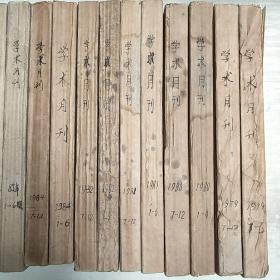 学术月刊
83年
1-6期
学术月刊
1984
7-12
学术月刊
1984
1-6
学术月刊
1982
7-12
学术月刊
1982
1-6
学术月刊
1981
7-12
学术月刊
1981
1-6
学术月刊
1980
7-12
学术月刊
1980
1-6
学术月刊
1979
7-12
学术月刊
1979
1-6